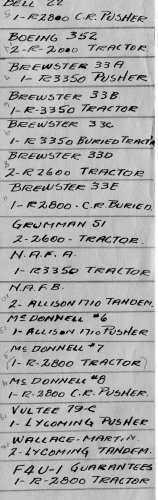 BELL 22
1-R2800 C.R. PUSHER
BOEING 352
2-R-2000 TRACTOR.
BREWSTER 33A
1-R3350 PUSHER
BREWSTER 33B
1-R-3350 TRACTOR
BREWSTER 33C
1-R 3350 BURIED TRACTR
BREWSTER 33D
2-R2600 TRACTOR.
BREWSTER 33E
1-R-2800-C.R. BURIED.
GRUMMAN 51
2-2600-TRACTOR.
N.A.F. A.
1-R3350 TRACTOR
N.A.F.B.
2-ALLISON 1710 TANDEM.
McDONNELL #6
1-ALLISON 1710 PUSHER
McDONNELL #7
(1-R-2800 TRACTOR)
McDONNELL #8
1-R-2800 C.R. PUSHER.
VULTEE 79-C
1-LYCOMING PUSHER
WALLACE-MARTIN.
2-LYCOMING TANDEM.
F4U-1 GUARANTEES
1-R-2800 TRACTOR